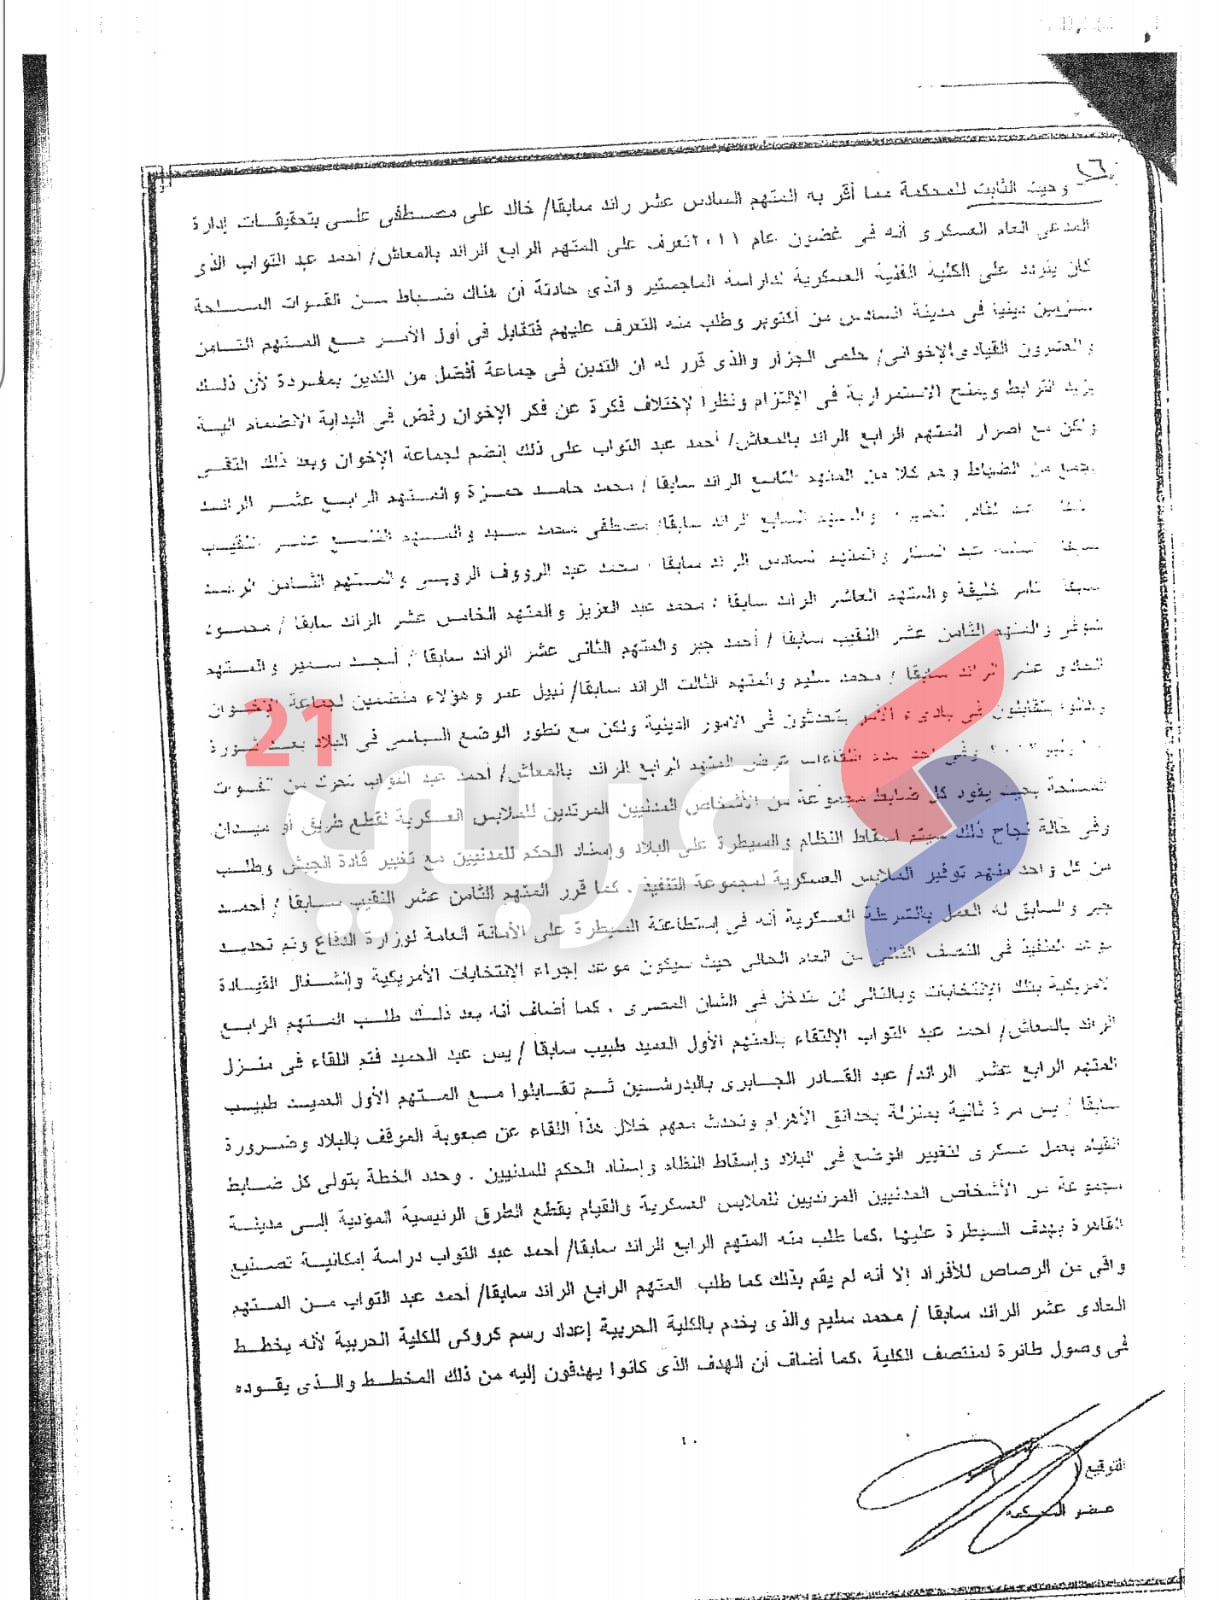 ١٦
وحيث الثابت للمحكمة مما أقر به المتهم السادس عشر رائد سابقا/ خالد على مصطفى على بتحقيقات إدارة
المدعى العام العسكرى أنه فى غضون عام ٢٠١١ تعرف على المتهم الرابع الرائد بالمعاش/ أحمد عبد التواب الذى
كان يتردد على الكلية الفنية العسكرية لدراسة الماجستير والذى حادثة أن هناك ضباط من القوات المسلحة
ملتزمين دينية فى مدينة السادس من أكتوبر وطلب منه التعرف عليهم فتقابل فى أول الأمر مع المتهم الثامن
والعشرون القيادى الإخوانى/ حلمى الجزار والذى قرر له ان التدين فى جماعة أفضل من التدين بمفردة لأن ذلك
يزيد الترابط ويمنح الاستمرارية فى الإلتزام ونظرا لإختلاف فكرة عن فكر الإخوان رفض فى البداية الانضمام الية
ولكن مع اصرار المتهم الرابع الرائد بالمعاش/ أحمد عبد التواب على ذلك إنضم لجماعة الإخوان وبعد ذلك التقى
بجمع من الضباط وهم كلا من المتهم التاسع الرائد سابقا / محمد حامد حمزة والمتهم الرابع عشر الرائد
والمتهم السابع الرائد سابقا/ مصطفى محمد سيد والمتهم عشر النقيب
سابقا عبد الستار والمتهم السادس الرائد سابقا / محمد عبد الرووف الرويسى والمتهم الثامن الرائد
سابقا تامر خليفة والمتهم العاشر الرائد سابقا / محمد عبد العزيز والمتهم الخامس عشر الرائد سابقا / محمود
شوقى والمتهم الثامن عشر النقيب سابقا / أحمد جبر والمتهم الثانى عشر الرائد سابقا / أمجد سمير والمتهم
الحادى عشر الرائد سابقا / محمد سليم والمتهم الثالث الرائد سابقا/ نبيل عمر وهولاء منضمين لجماعة الإخوان
وكانوا يتقابلون فى بادىء الأمر يتحدثون فى الامور الدينية ولكن مع تطور الوضع السياسى فى البلاد بعد ثورة
وفى احد هذه اللقاءات عرض المتهم الرابع الرائد بالمعاش/ أحمد عبد التواب تحرك من القوات
المسلحة بحيث يقود كل ضابط مجموعة من الأشخاص المدنيين المرتدين للملابس العسكرية لقطع طريق أو ميدان
وفى حالة نجاح ذلك سيتم اسقاط النظام والسيطرة على البلاد وإسناد الحكم للمدنيين مع تغيير قادة الجيش وطلب
من كل واحد منهم توفير الملابس العسكرية لمجموعة التنفيذ . كما قرر المتهم الثامن عشر النقيب سابقا / أحمد
جبر والسابق له العمل بالشرطة العسكرية أنه فى إستطاعتة السيطرة على الأمانة العامة لوزارة الدفاع وتم تحديد
موعد التنفيذ فى النصف الثانى من العام الحالى حيث سيكون موعد إجراء الإنتخابات الأمريكية وإنشغال القيادة
الامريكية بتلك الإنتخابات وبالتالى لن تتدخل فى الشان المصرى . كما أضاف أنه بعد ذلك طلب المتهم الرابع
الرائد بالمعاش/ احمد عبد التواب الإلتقاء بالمتهم الأول العميد طبيب سابقا / يس عبد الحميد فتم اللقاء فى منزل
المتهم الرابع عشر الرائد/ عبد القادر الجابرى بالبدرشين ثم تقابلوا مع المتهم الأول العميد طبيب
سابقا / يس مرة ثانية بمنزلة بحدائق الأهرام وتحدث معهم خلال هذا اللقاء عن صعوبة الموقف بالبلاد وضرورة
القيام بعمل عسكرى لتغيير الوضع فى البلاد وإسقاط النظام وإسناد الحكم للمدنيين . وحدد الخطة بتولى كل ضابط
مجموعة من الأشخاص المدنيين المرتديين للملابس العسكرية والقيام بقطع الطرق الرئيسية المؤدية إلى مدينة
القاهرة بهدف السيطرة عليها .كما طلب منه المتهم الرابع الرائد سابقا/ أحمد عبد التواب دراسة إمكانية تصنيع
واقى من الرصاص للأفراد إلا أنه لم يقم بذلك كما طلب المتهم الرابع الرائد سابقا/ أحمد عبد التواب من المتهم
الحادى عشر الرائد سابقا / محمد سليم والذى يخدم بالكلية الحربية إعداد رسم كروكى للكلية الحربية لأنه يخطط
فى وصول طائرة لمنتصف الكلية .كما أضاف أن الهدف الذى كانوا يهدفون إليه من ذلك المخطط والذى يقوده
التوقيع
عضو المحكمة
عربي 21